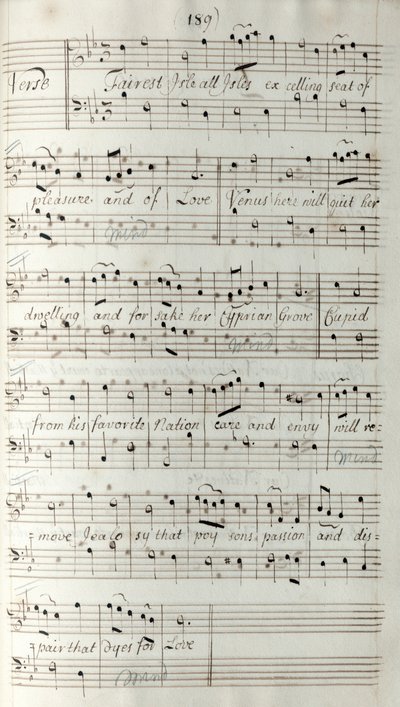 (189)
Verse Fairest Isle all Isles ex celling seat of
pleasure and of Love Venus here will quit her
mind
dwelling and for sake her Cyprian Grove Cupid
mind
from his favorite Nation care and envy will re=
mind
=move Jealo sy that poy sons passion and dis=
=pair that dyes for Love
mind